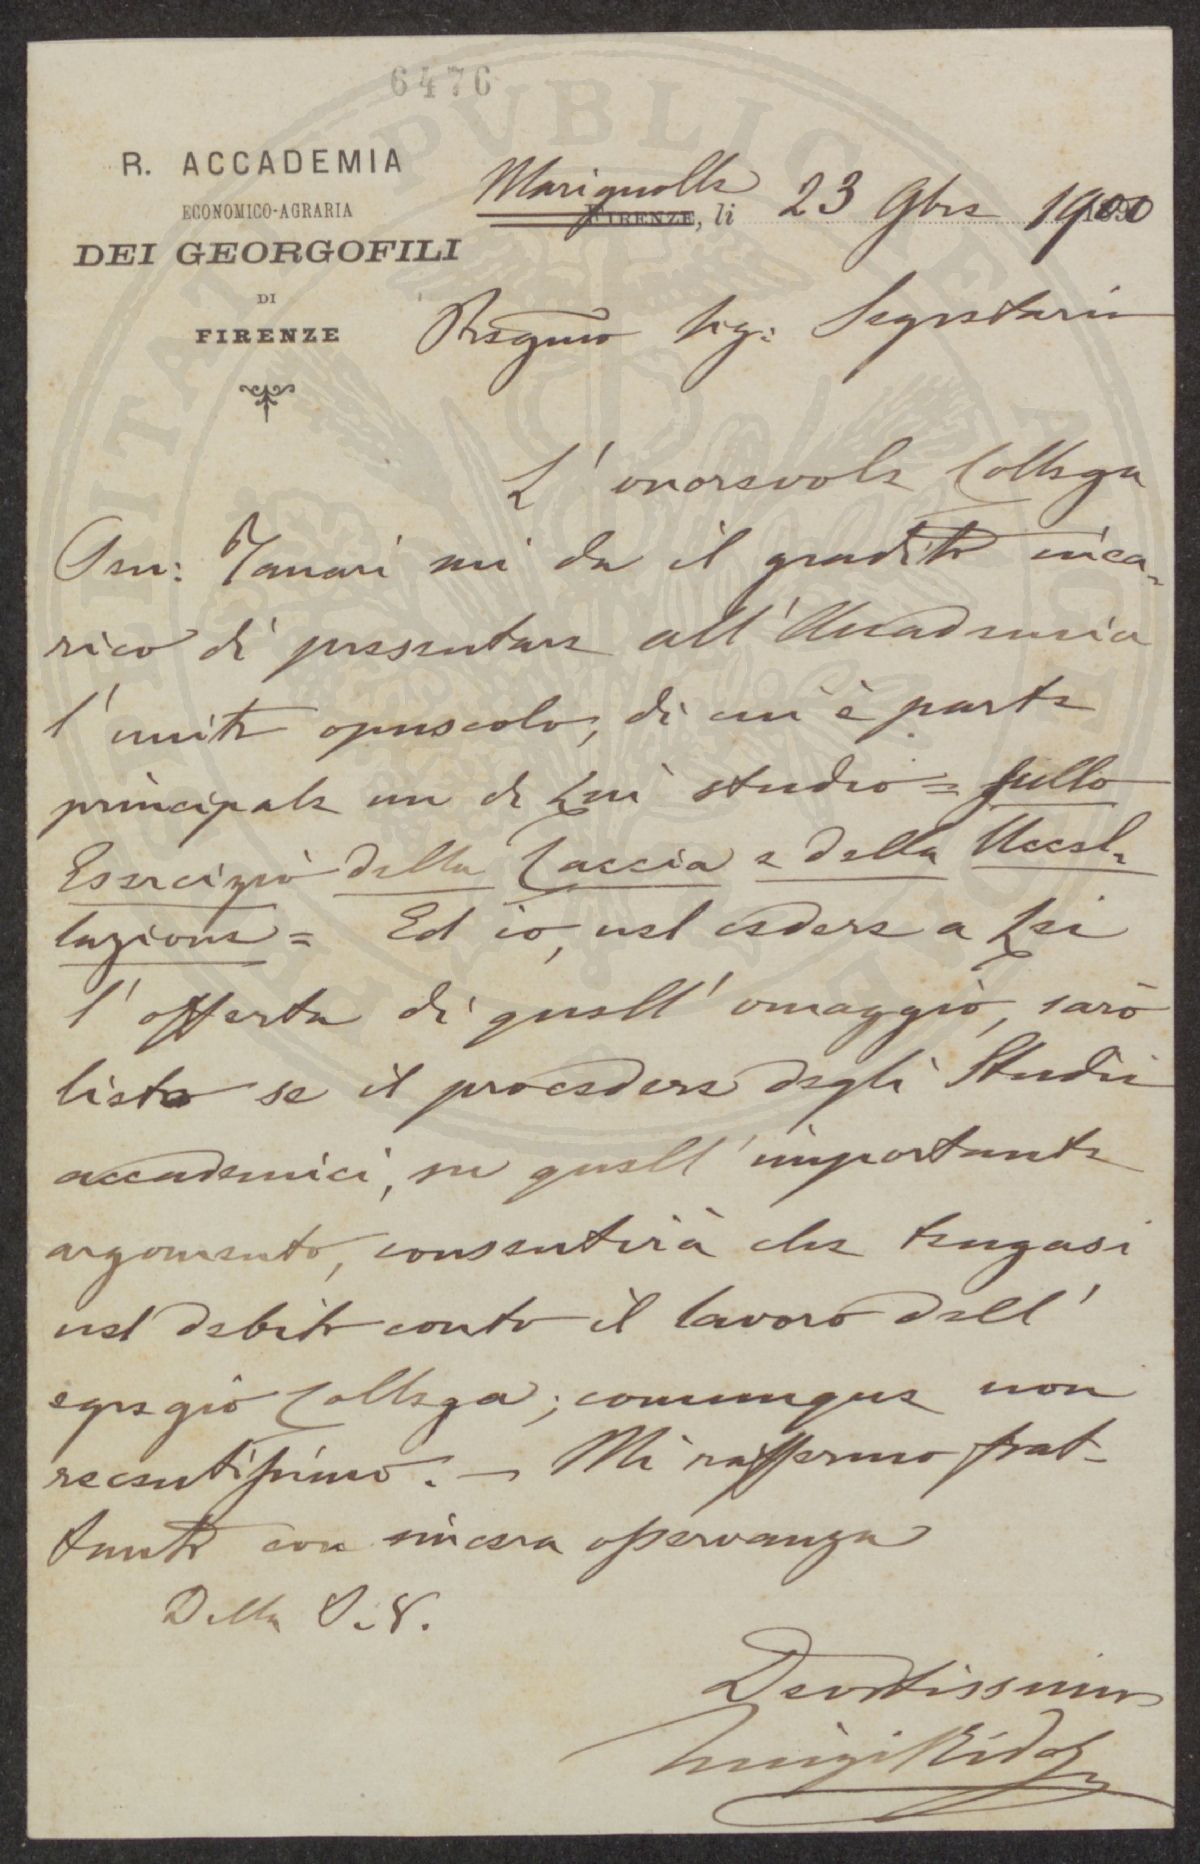 6476
R. ACCADEMIA
ECONOMICO-AGRARIA
DEI GEORGOFILI
DI
FIRENZE
Marignolle
FIRENZE, li 23 9bre 1900
Pregmo Sig: Segretario
L'onorevole Collega
Sen: Tanari mi da il gradito inca-
rico di presentare all'Accademia
l'unito opuscolo, di cui è parte
principale un di Lui studio = sullo
Esercizio della Caccia e della Uccel-
lazione = Ed io, nel cedere a Lei
l'offerta di quell'omaggio, sarò
lieto se il procedere degli Studii
accademici, su quell'importante
argomento, consentirà che tengasi
nel debito conto il lavoro dell'
egregio Collega; comunque non
recentissimo. — Mi raffermo frat-
tanto con sincera osservanza
Della S. V.
Devotissimo
Luigi Ridolfi